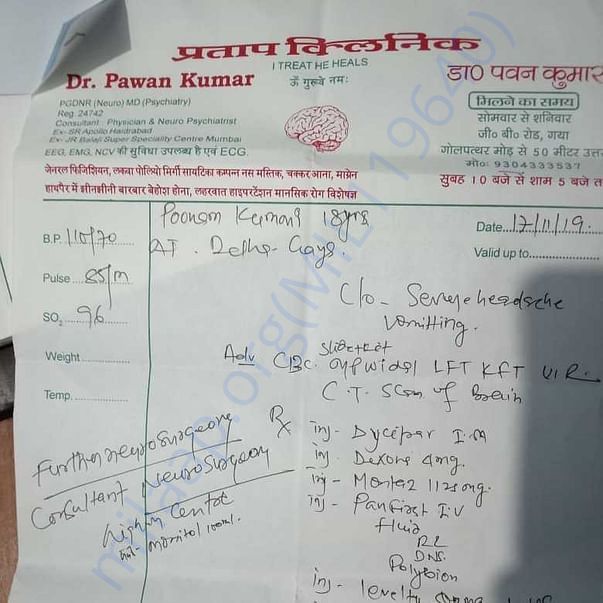 प्रताप क्लिनिक
I TREAT HE HEALS
ॐ गुरूवे नमः
Dr. Pawan Kumar
डा0 पवन कुमार
PGDNR (Neuro) MD (Psychiatry)
Reg. 24742
Consultant : Physician & Neuro Psychiatrist
Ex- SR Apollo Haidrabad
Ex- JR Balaji Super Speciality Centre Mumbai
EEG, EMG, NCV की सुविधा उपलब्ध है एवं ECG.
मिलने का समय
सोमवार से शनिवार
जी० बी० रोड, गया
गोलपत्थर मोड़ से 50 मीटर उत्त
मो०: 9304333537
सुबह 10 बजे से शाम 5 बजे त
जेनरल फिजिशियन, लकवा पोलियो मिर्गी सायटिका कम्पन नस मस्तिक, चक्कर आना, माग्रेन
हाथपैर में झीनझीनी बारबार बेहोश होना, लहरवात हाइपरटेंशन मानसिक रोग विशेषज्ञ
Poonam Kumari 18yrs
Date 17/11/19
B.P. 110/70
AT. Delha- Gaya.
Valid up to
Pulse 85/m
C/o - Severe headache
Vomitting.
SO2 96
Adv CBC LFT KFT
Weight
C.T. Scan of Brain
Temp.
Rx
Further neurosurgeory
Consultant Neurosurgeory
Higher Centre
100ml.
inj - I.M
inj - Dexona 4mg.
inj -
inj - I.V
fluid
RL
DNS
Polybion
inj -
milaap.org(MIL119640)